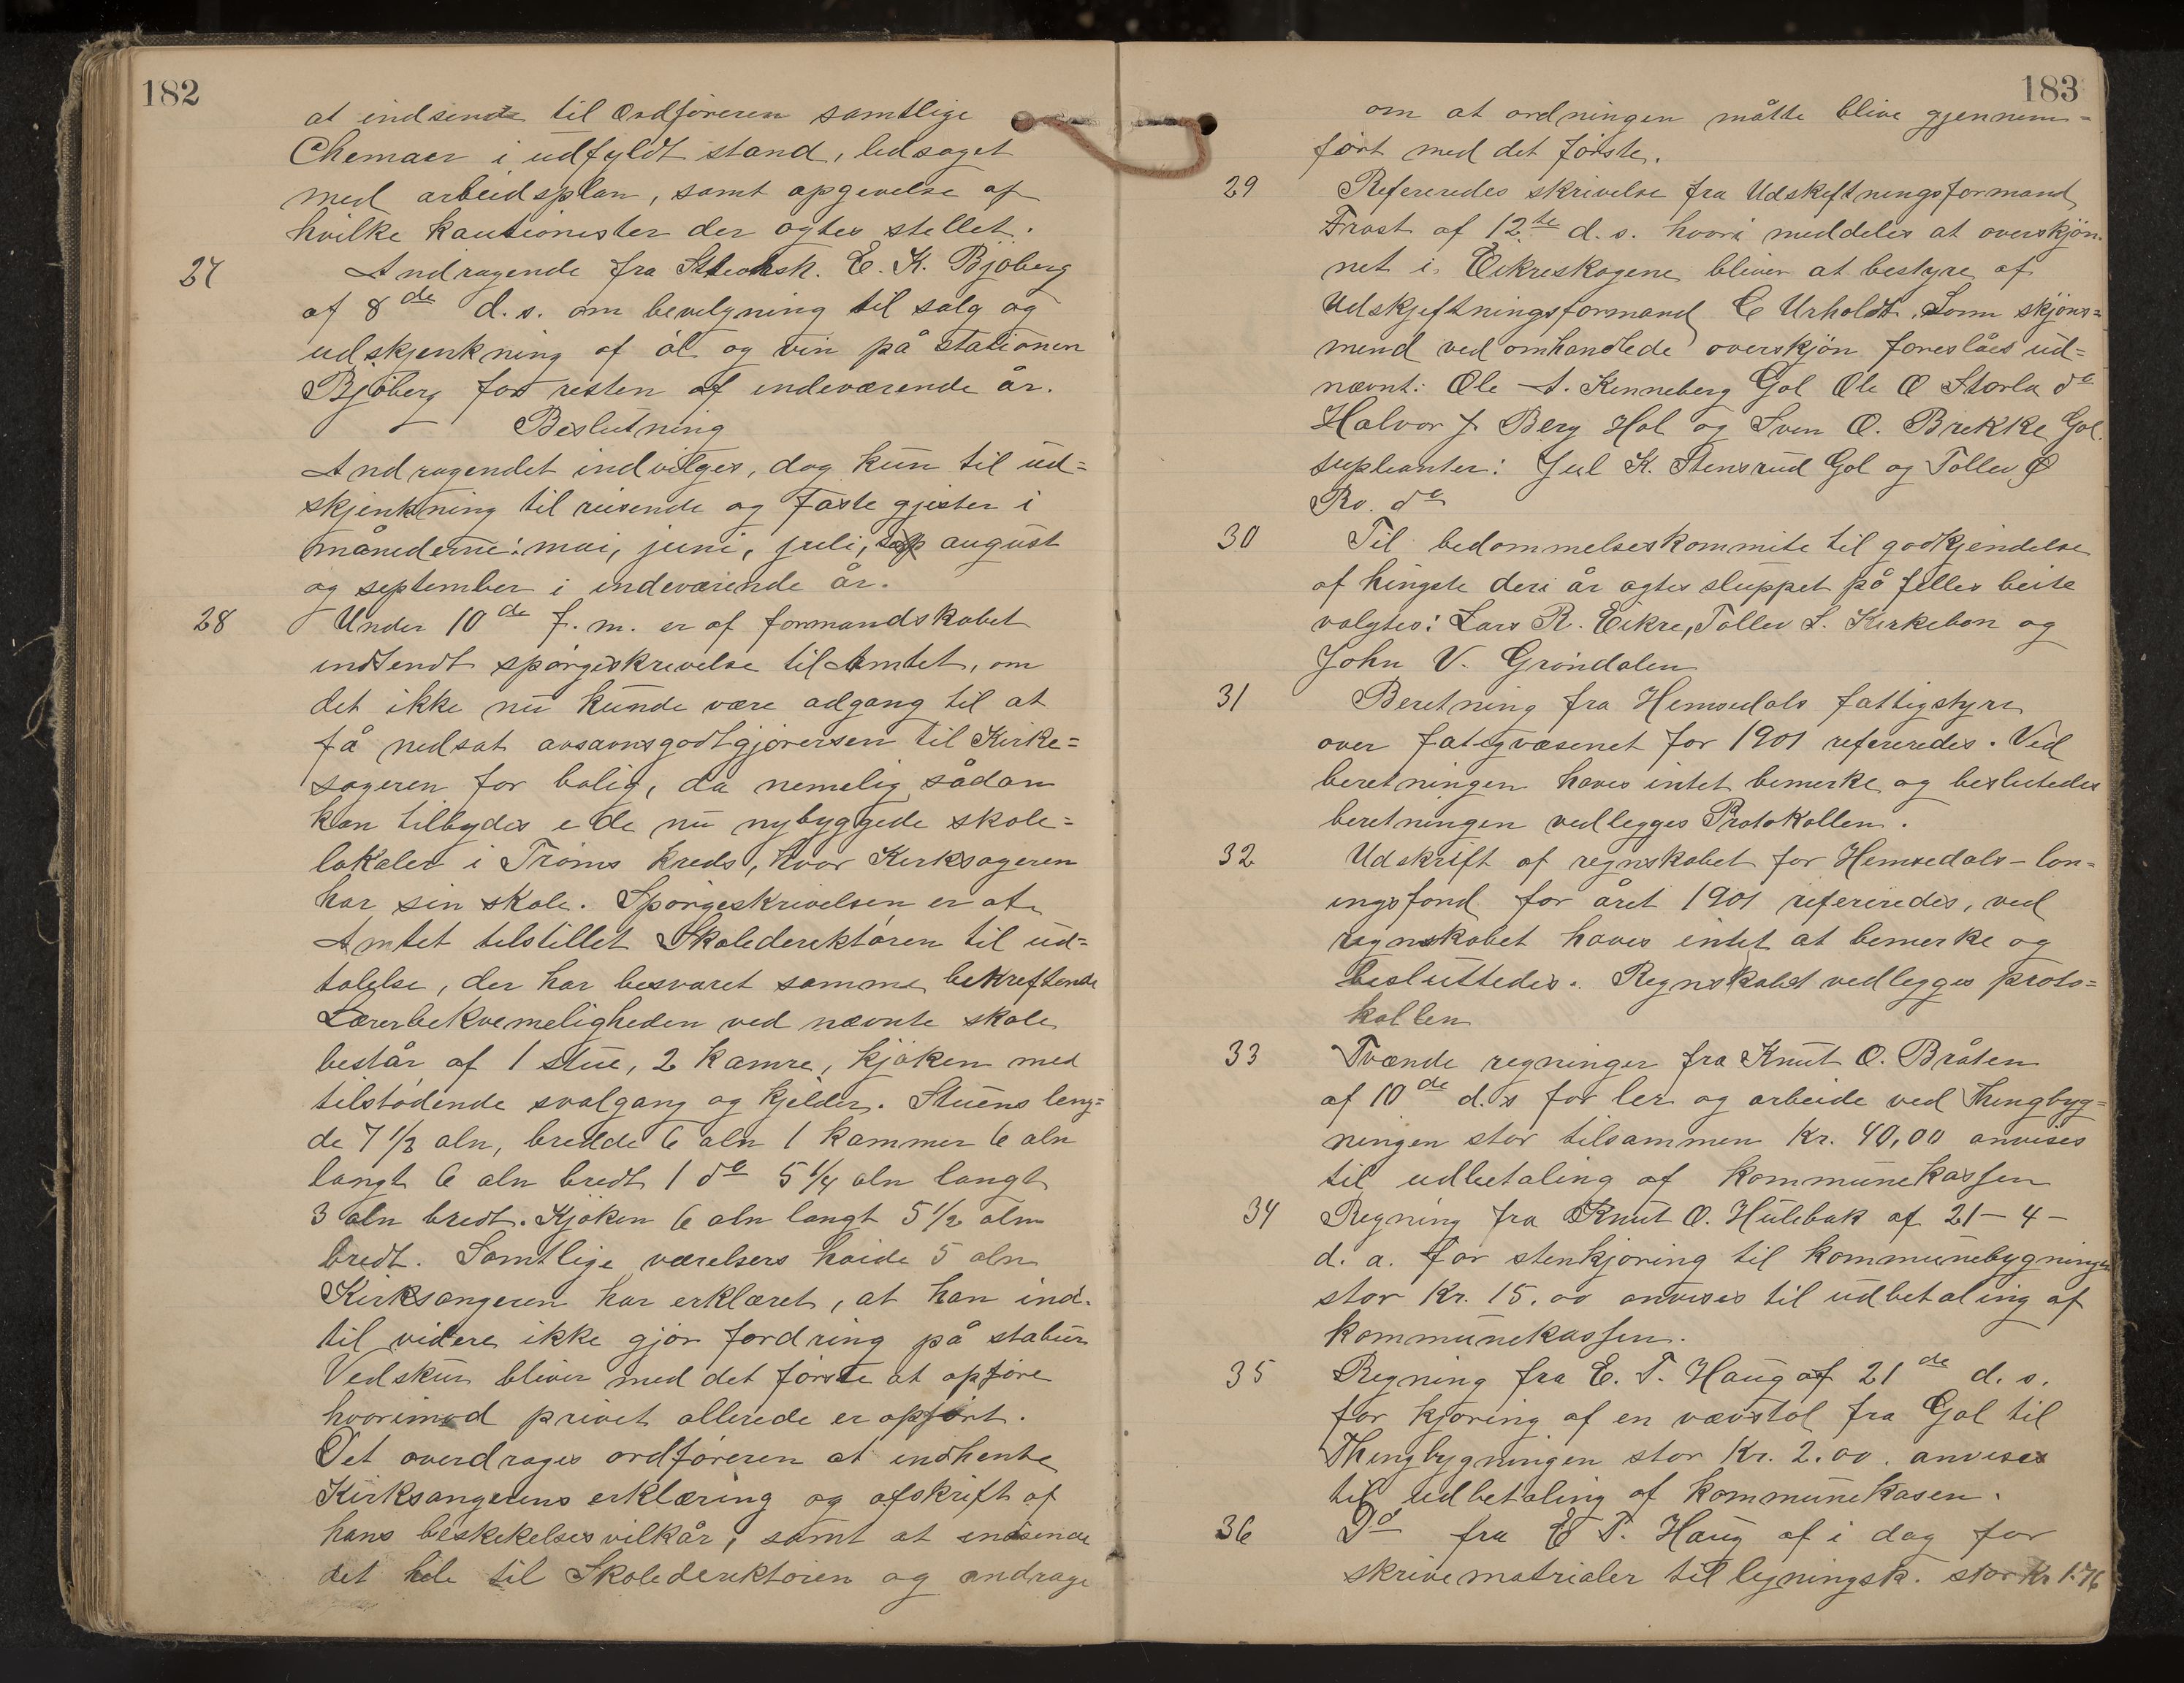 182
at indsende til Ordföreren samtlige
Chemaer i udfyldt stand, ledsaget
med arbeidsplan, samt opgevelse af
hvilke kautionister der agtes stellet.
27 Andragende fra E. K. Bjöberg
af 8de d.s. om bevilgning til salg og
udskjenkning af öl og vin på stationen
Bjöberg for resten af indeværende år.
Beslutning
Andragendet indvilges, dog kun til ud=
skjenkning til reisende og faste gjester i
månederne: mai, juni, juli, august
og september i indeværende år.
28 Under 10de f.m. er af formandskabet
indsendt spörgeskrivelse til Amtet, om
det ikke nu kunde være adgang til at
få nedsat godtgjörersen til Kirke=
sageren for bolig, da nemelig sådan
kan tilbydes i de nu nybyggede skole=
lokaler i Tröms kreds, hvor Kirksageren
har sin skole. Spörgeskrivelsen er af
Amtet tilstillet Skoledirektören til ud=
talelse, der har besvaret samme bekreftende
Lærerbekvemeligheden ved nævnte skole
består af 1 stue, 2 kamre, kjöken med
tilstödende svalgang og kjelder. Stuens leng=
de 7 1/2 aln, bredde 6 aln 1 kammer 6 aln
langt 6 aln bredt 1 do 5 1/4 aln langt
3 aln bredt. Kjöken 6 aln langt 5 1/2 aln
bredt. Samtlige værelsers höide 5 aln
Kirksangeren har erklæret, at han ind-
til videre ikke gjör fordring på stabur
Vedskur bliver med det förste at opföre
hvorimod privet allerede er opfört.
Det overdrages ordföreren at indhente
Kirksangerens erklæring og afskrift af
hans beskekelsesvilkår, samt at indsende
det hele til Skoledirektören og andrage
183
om at ordningen måtte blive gjennem=
fört med det förste.
29 Refereredes skrivelse fra Udskiftningsformand
Frost af 12te d.s. hvori meddeles at overskjön-
net i Eikreskogene bliver at bestyre af
Udskjeftningsformand C Urholdt. Som skjöns=
mend ved omhandlede overskjön foreslåes ud=
nævnt: Ole A. Kenneberg Gol Ole O Storla do
Halvor J. Berg Hol og Sven O. Brekke Gol.
supleanter: Jul K. Stensrud Gol og Tollev O
Ro. do
30 Til bedommelseskommite til godkjendelse
af hingste der i år agtes sluppet på felles beite
valgtes: Lars R. Eikre, Tollev L. Kirkebøn og
John V. Gröndalen
31 Beretning fra Hemsedals fattigstyre
over fatigvæsenet for 1901 refereredes. Ved
beretningen haves intet bemerke og beslutedes
beretningen vedlegges Protokollen.
32 Udskrift af regnskabet for Hemsedals-lon=
ingsfond for året 1901 refereredes, ved
regnskabet haves intet at bemerke og
besluttedes. Regnskabet vedlegges proto=
kollen
33 Tvænde regninger fra Knut O. Bråten
af 10de d.s for ler og arbeide ved Thingbyg=
ningen stor tilsammen Kr. 40,00 anvises
til udbetaling af kommunekassen
34 Regning fra Knut O. Hulebak af 21-4-
d. a. for stenkjöring til kommunebygningen
stor Kr. 15.00 anvises til udbetaling af
kommunekassen.
35 Regning fra E. T. Haug af 21de d.s.
for kjöring af en vævstol fra Gol til
Thingbygningen stor Kr. 2.00. anvises
til udbetaling af kommunekasen.
36 Do fra E T. Haug af i dag for
skrivematrialer til ligningsk. stor Kr 1.76